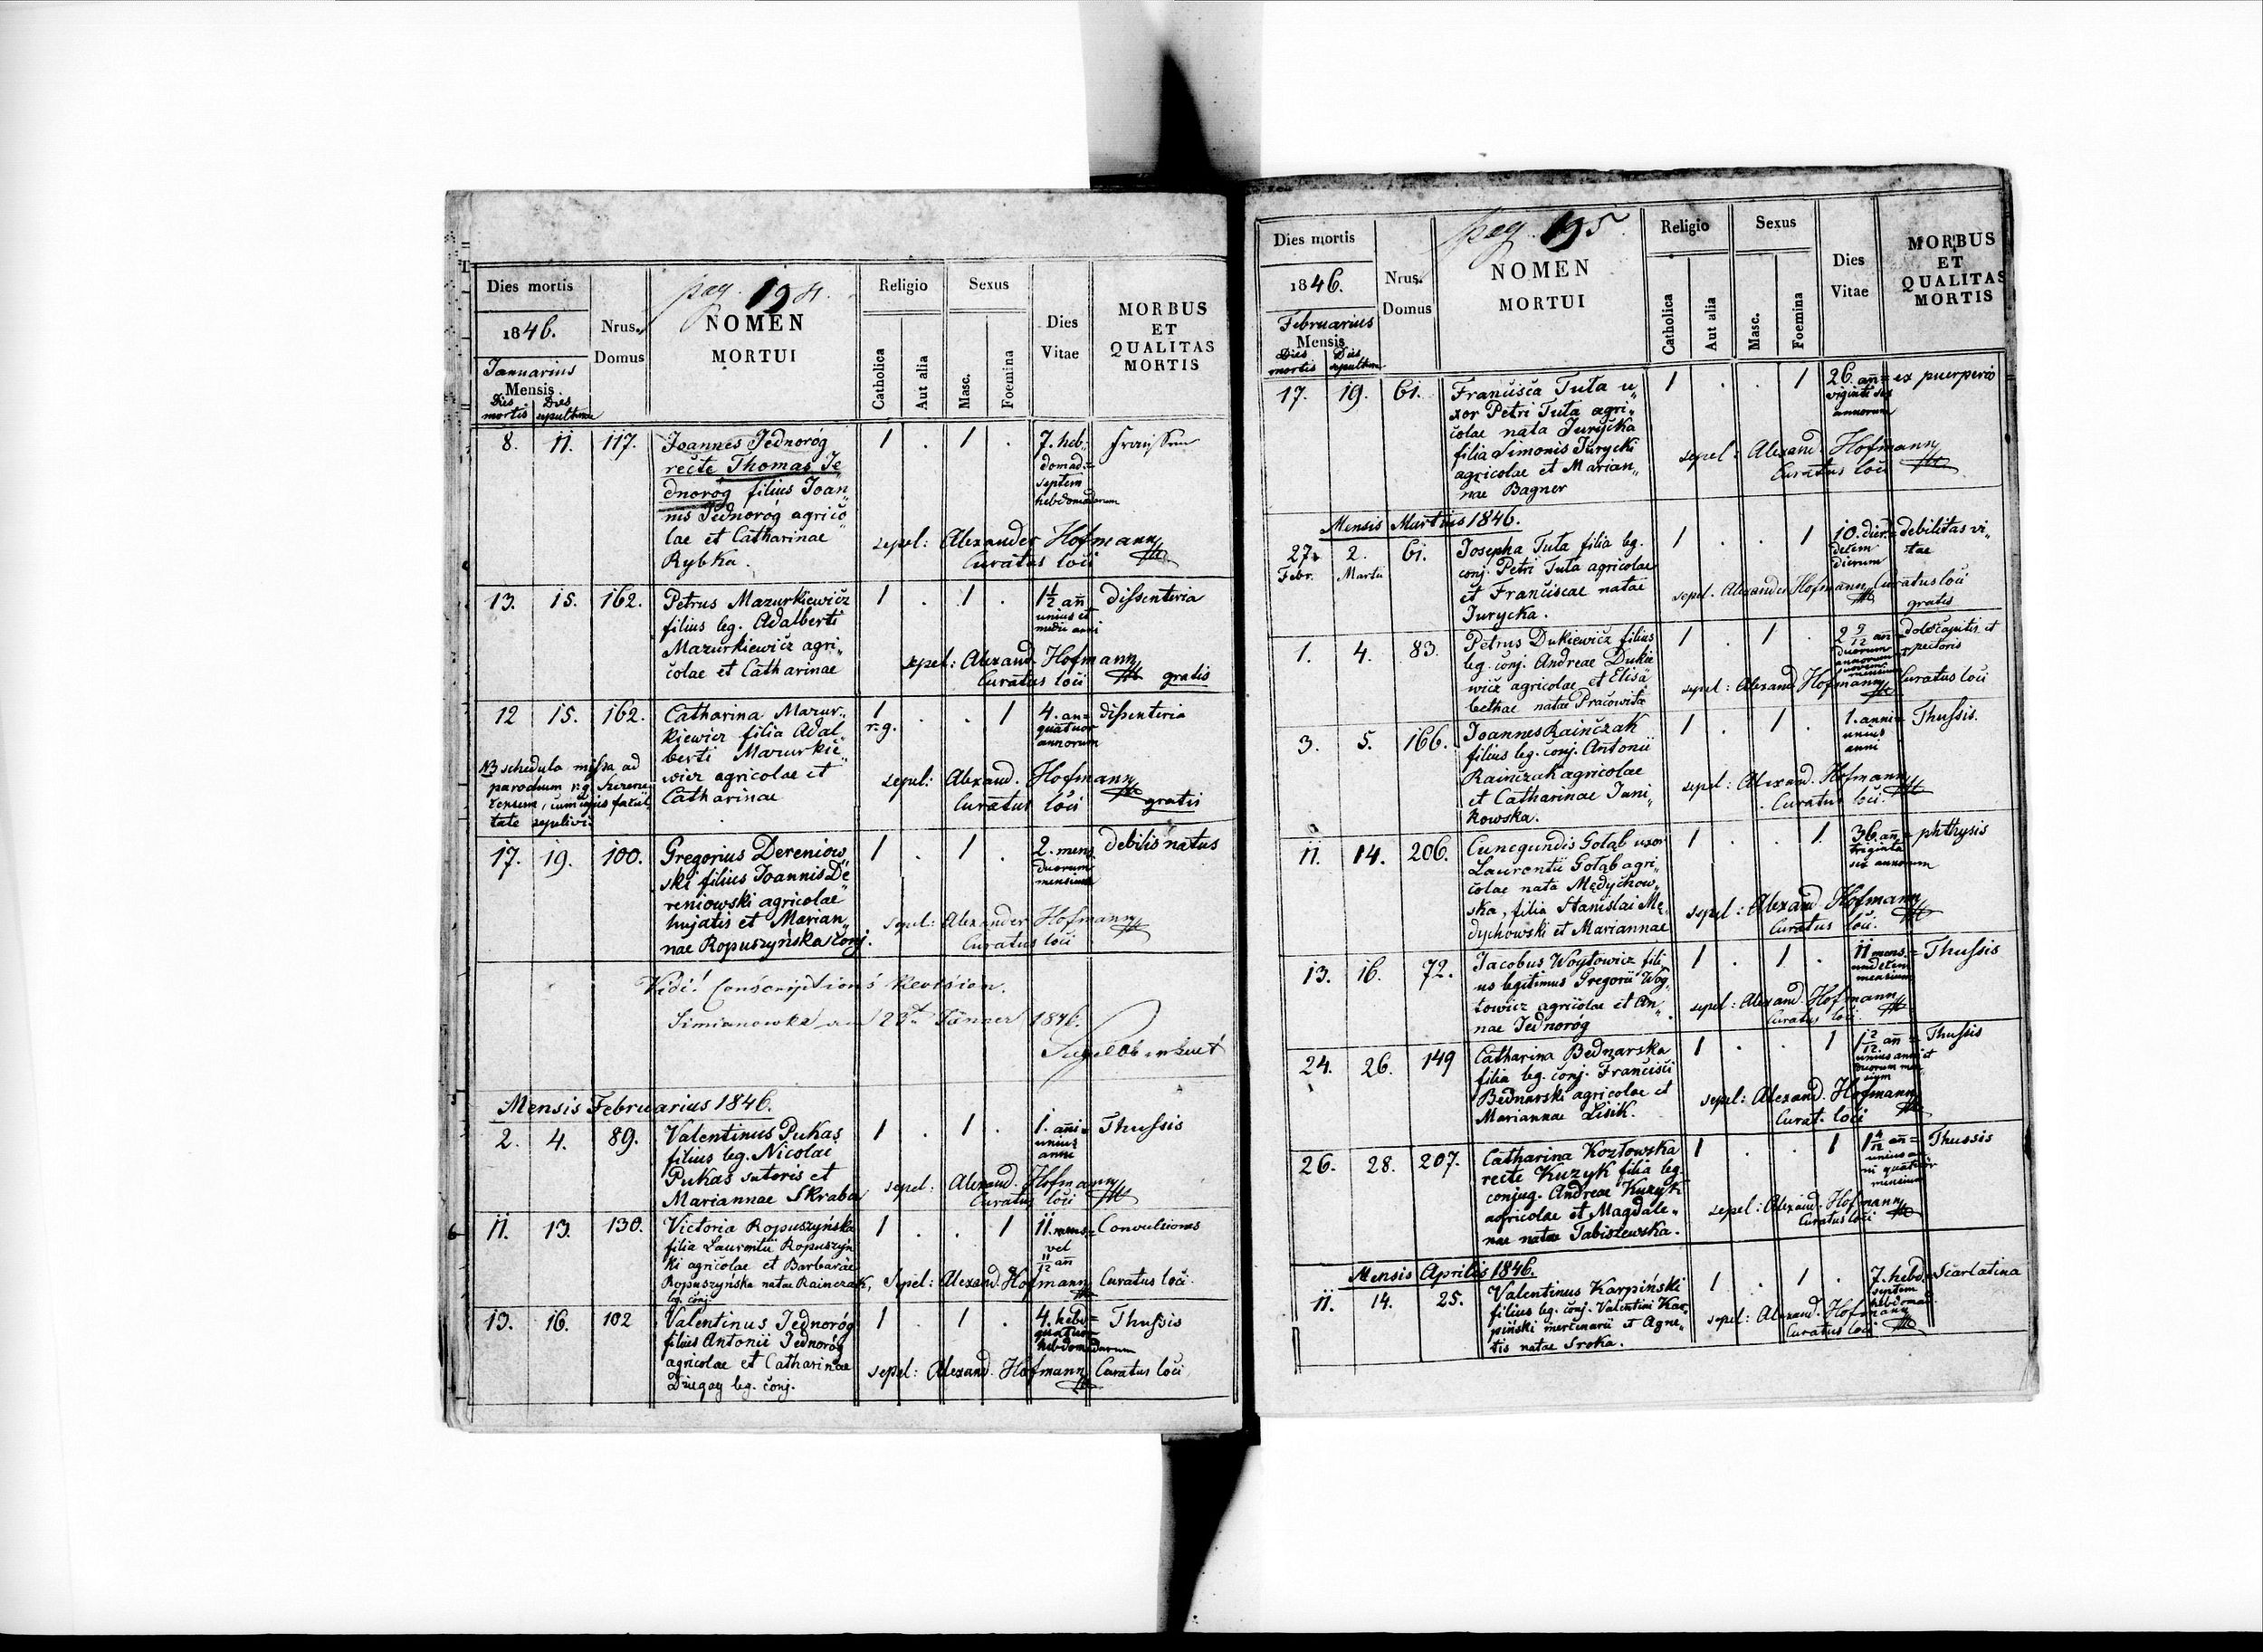 pag. 194.
Dies mortis
1846.
Januarius
Mensis
Dies mortis
Dies sepulturae
Nrus. Domus
NOMEN
MORTUI
Religio
Catholica
Aut alia
Sexus
Masc.
Foemina
Dies
Vitae
MORBUS
ET
QUALITAS
MORTIS
8. 11. 117. Joannes Jednoróg 1 . 1 . 7. heb„
recte Thomas Je domad=
dnorog filius Joan„ septem
nis Jednoróg agrico hebdomadarum
lae et Catharinae sepel: Alexander Hofmann
Rybka. Curatus loci
13. 15. 162. Petrus Mazurkiewicz 1 . 1 . 1½ añ dissenteria
filius leg. Adalberti unius et
Mazurkiewicz agri„ medii anni
colae et Catharinae sepel: Alexand. Hofmann
Curatus loci gratis
12 15. 162. Catharina Mazur„ 1 . . 1 4. an= dissenteria
kiewicz filia Adal„ r.g. quatuor
berti Mazurkie„ annorum
wicz agricolae et sepel: Alexand. Hofmann
Catharinae Curatus loci gratis
NB schedula missa ad
parochum r.g.
tensem, cum ejus facul„
tate sepelivi.
17. 19. 100. Gregorius Dereniow 1 . 1 . 2. mens debilis natus
ski filius Joannis De duorum
reniowski agricolae mensium
hujatis et Marian„ sepel: Alexander Hofmann
nae Ropuszyńska conj. Curatus loci
Vidi! Conscriptions Revision.
Simianowka am 23t Jänner 1846.
Mensis Februarius 1846.
2. 4. 89. Valentinus Pukas 1 . 1 . 1. añi= Thussis
filius leg. Nicolai unius
Pukas sutoris et anni
Mariannae Skraba sepel: Alexand. Hofmann
Curatus loci
11. 13. 130. Victoria Ropuszyńska 1 . . 1 11. mens= Convulsiones
filia Laurentii Ropuszyń vel
ki agricolae et Barbarae 11/12 añ
Ropuszyńska natae Rainczak, Sepel: Alexand. Hofmann Curatus loci.
leg. conj.
13. 16. 102 Valentinus Jednoróg 1 . 1 . 4. hebd= Thussis
filius Antonii Jednoróg quatuor
agricolae et Catharinae hebdomadarum
leg. conj. sepel: Alexand. Hofmann Curatus loci
pag. 195.
Dies mortis
1846.
Februarius
Mensis
Dies mortis
Dies sepulturae
Nrus. Domus
NOMEN
MORTUI
Religio
Catholica
Aut alia
Sexus
Masc.
Foemina
Dies
Vitae
MORBUS
ET
QUALITAS
MORTIS
17. 19. 61. Francisca Tuta u„ 1 . . 1 26. añ= ex puerperio
xor Petri Tuta agri„ viginti sex
colae nata Jurycka annorum
filia Simonis Jurycki sepel: Alexand. Hofmann
agricolae et Marian„ Curatus loci
nae Bagner
Mensis Martius 1846.
27. 2. 61. Josepha Tuta filia leg. 1 . . 1 10. dier= debilitas vi„
Febr. Martii conj. Petri Tuta agricolae decem tae
et Franciscae natae dierum
Jurycka. sepel. Alexander Hofmann Curatus loci
gratis
1. 4. 83. Petrus Dukiewicz filius 1 . 1 . 2 9/12 añ dolor capitis et
leg. conj. Andreae Dukie duorum annorum et pectoris
wicz agricolae et Elisa novem mensium
bethae natae Pracowita sepel: Alexand. Hofmann Curatus loci
3. 5. 166. Joannes Rainczak 1 . 1 . 1. anni= Thussis.
filius leg. conj. Antonii unius
Rainczak agricolae anni
et Catharinae Jani„ sepel: Alexand. Hofmann
kowska. Curatus loci.
11. 14. 206. Cunegundis Gołąb uxor 1 . . 1. 36. añ= phthysis
Laurentii Gołąb agri„ triginta
colae nata Mędychow„ sex annorum
ska, filia Stanislai Mę„ sepel: Alexand. Hofmann
dychowski et Mariannae Curatus loci.
13. 16. 72. Jacobus Woytowicz fili„ 1 . 1 . 11 mens.= Thussis
us legitimus Gregorii Woy„ undecem
towicz agricolae et An„ mensium
nae Jednorog sepel: Alexand. Hofmann
Curatus loci
24. 26. 149 Catharina Bednarska 1 . . 1 1 2/12 añ= Thussis
filia leg. conj. Francisci unius anni et
Bednarski agricolae et duorum mensium
Mariannae Lisik. sepel: Alexand. Hofmann
Curat. loci
26. 28. 207. Catharina Kozłowska 1 . . 1 1 4/12 añ= Thussis
recte Kuzyk filia leg. unius an„
conjug. Andreae Kuzyk ni quatuor
agricolae et Magdale„ mensium
nae natae Tabiszewska. sepel: Alexand. Hofmann
Curatus loci
Mensis Aprilis 1846.
11. 14. 25. Valentinus Karpiński 1 . 1 . 7. hebd.= Scarlatina
filius leg. conj. Valentini Kar„ septem
piński mercenarii et Agne„ hebdomad.
tis natae Sroka. sepel: Alexand. Hofmann
Curatus loci